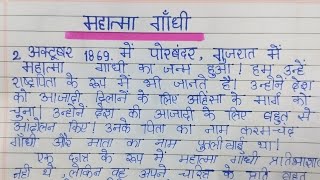 महात्मा गाँधी
2 अक्टूबर 1869 में पोरबंदर, गुजरात में
महात्मा गाँधी का जन्म हुआ। हम उन्हें
राष्ट्रपिता के रूप में भी जानते हैं। उन्होंने देश
को आजादी दिलाने के लिए अहिंसा के मार्ग को
चुना। उन्होंने देश की आजादी के लिए बहुत से
आंदोलन किए। उनके पिता का नाम करम-चंद
गाँधी और माता का नाम पुतलीबाई था।
एक छात्र के रूप में महात्मा गाँधी
नहीं थे, लेकिन वह अपने चरित्र के प्रति बहुत